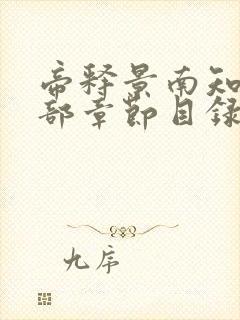 帝释景南知
部章节目录
九序